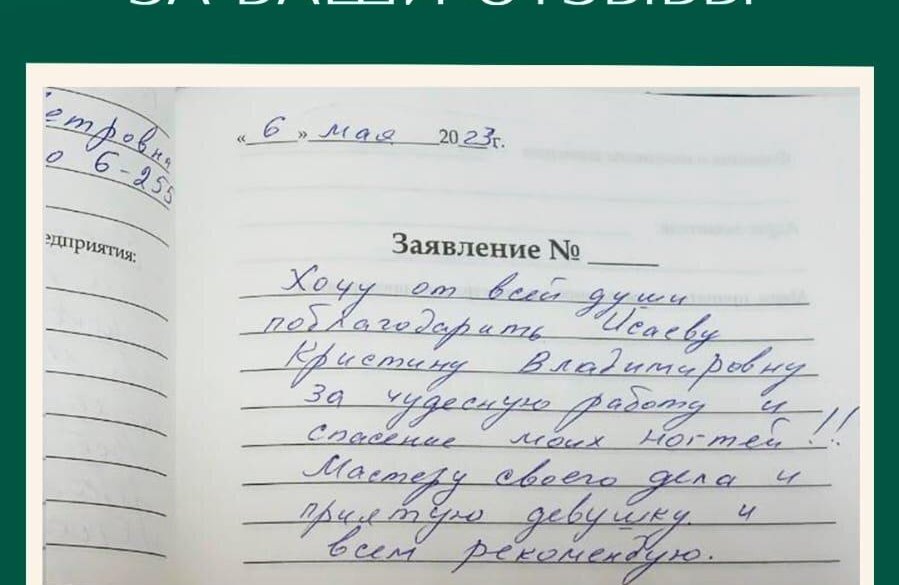 ЗА ВАШИ ОТЗЫВЫ
етровна
о 6-255
едприятия:
«6» мая 2023г.
Заявление №
Хочу от всей души
поблагодарить Исаеву
Кристину Владимировну
за чудесную работу и
спасение моих ногтей!!
Мастеру своего дела и
приятную девушку и
всем рекомендую.